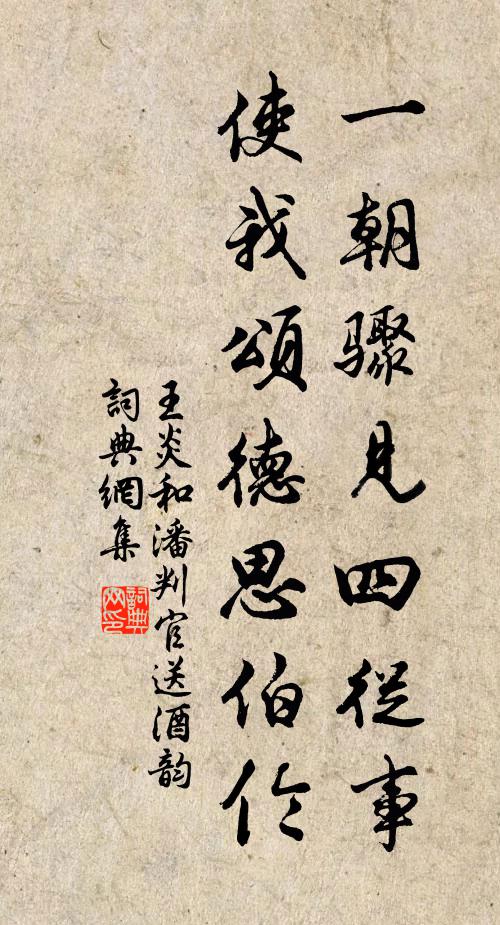 一朝驟見四從事
使我頌德思伯伶
王炎和潘判官送酒韵
詞典網集
詞典网印